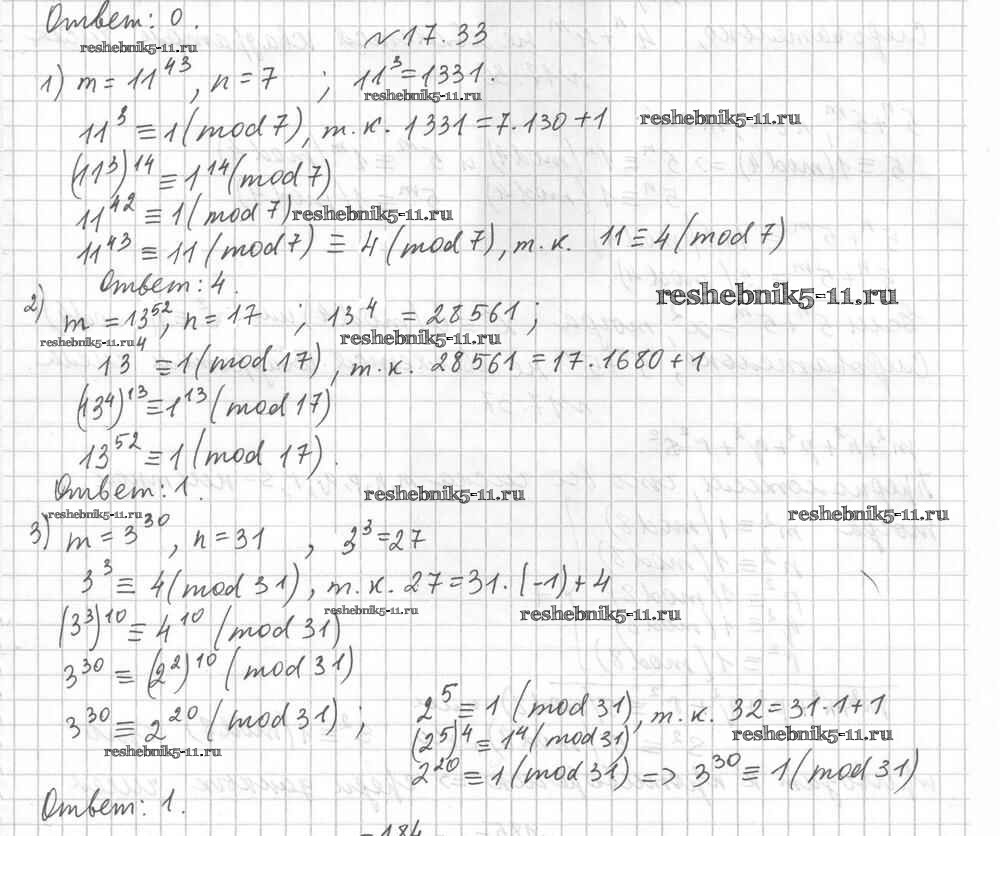 Ответ: 0.
reshebnik5-11.ru
№17.33
1) m = 11^43, n = 7 ; 11^3 = 1331.
reshebnik5-11.ru
11^3 ≡ 1 (mod 7), т.к. 1331 = 7·190+1
reshebnik5-11.ru
(11^3)^14 ≡ 1^14 (mod 7)
11^42 ≡ 1 (mod 7)
reshebnik5-11.ru
11^43 ≡ 11 (mod 7) ≡ 4 (mod 7), т.к. 11 ≡ 4 (mod 7)
Ответ: 4.
reshebnik5-11.ru
2) m = 13^52, n = 17 ; 13^4 = 28561 ;
reshebnik5-11.ru
reshebnik5-11.ru
13^4 ≡ 1 (mod 17), т.к. 28561 = 17·1680+1
(13^4)^13 ≡ 1^13 (mod 17)
13^52 ≡ 1 (mod 17).
Ответ: 1.
reshebnik5-11.ru
reshebnik5-11.ru
reshebnik5-11.ru
3) m = 3^30, n = 31 , 3^3 = 27
3^3 ≡ 4 (mod 31), т.к. 27 = 31·(-1)+4
reshebnik5-11.ru
reshebnik5-11.ru
(3^3)^10 ≡ 4^10 (mod 31)
3^30 ≡ (2^2)^10 (mod 31)
3^30 ≡ 2^20 (mod 31) ; 2^5 ≡ 1 (mod 31), т.к. 32 = 31·1+1
reshebnik5-11.ru
(2^5)^4 ≡ 1^4 (mod 31)
reshebnik5-11.ru
2^20 ≡ 1 (mod 31) => 3^30 ≡ 1 (mod 31)
Ответ: 1.